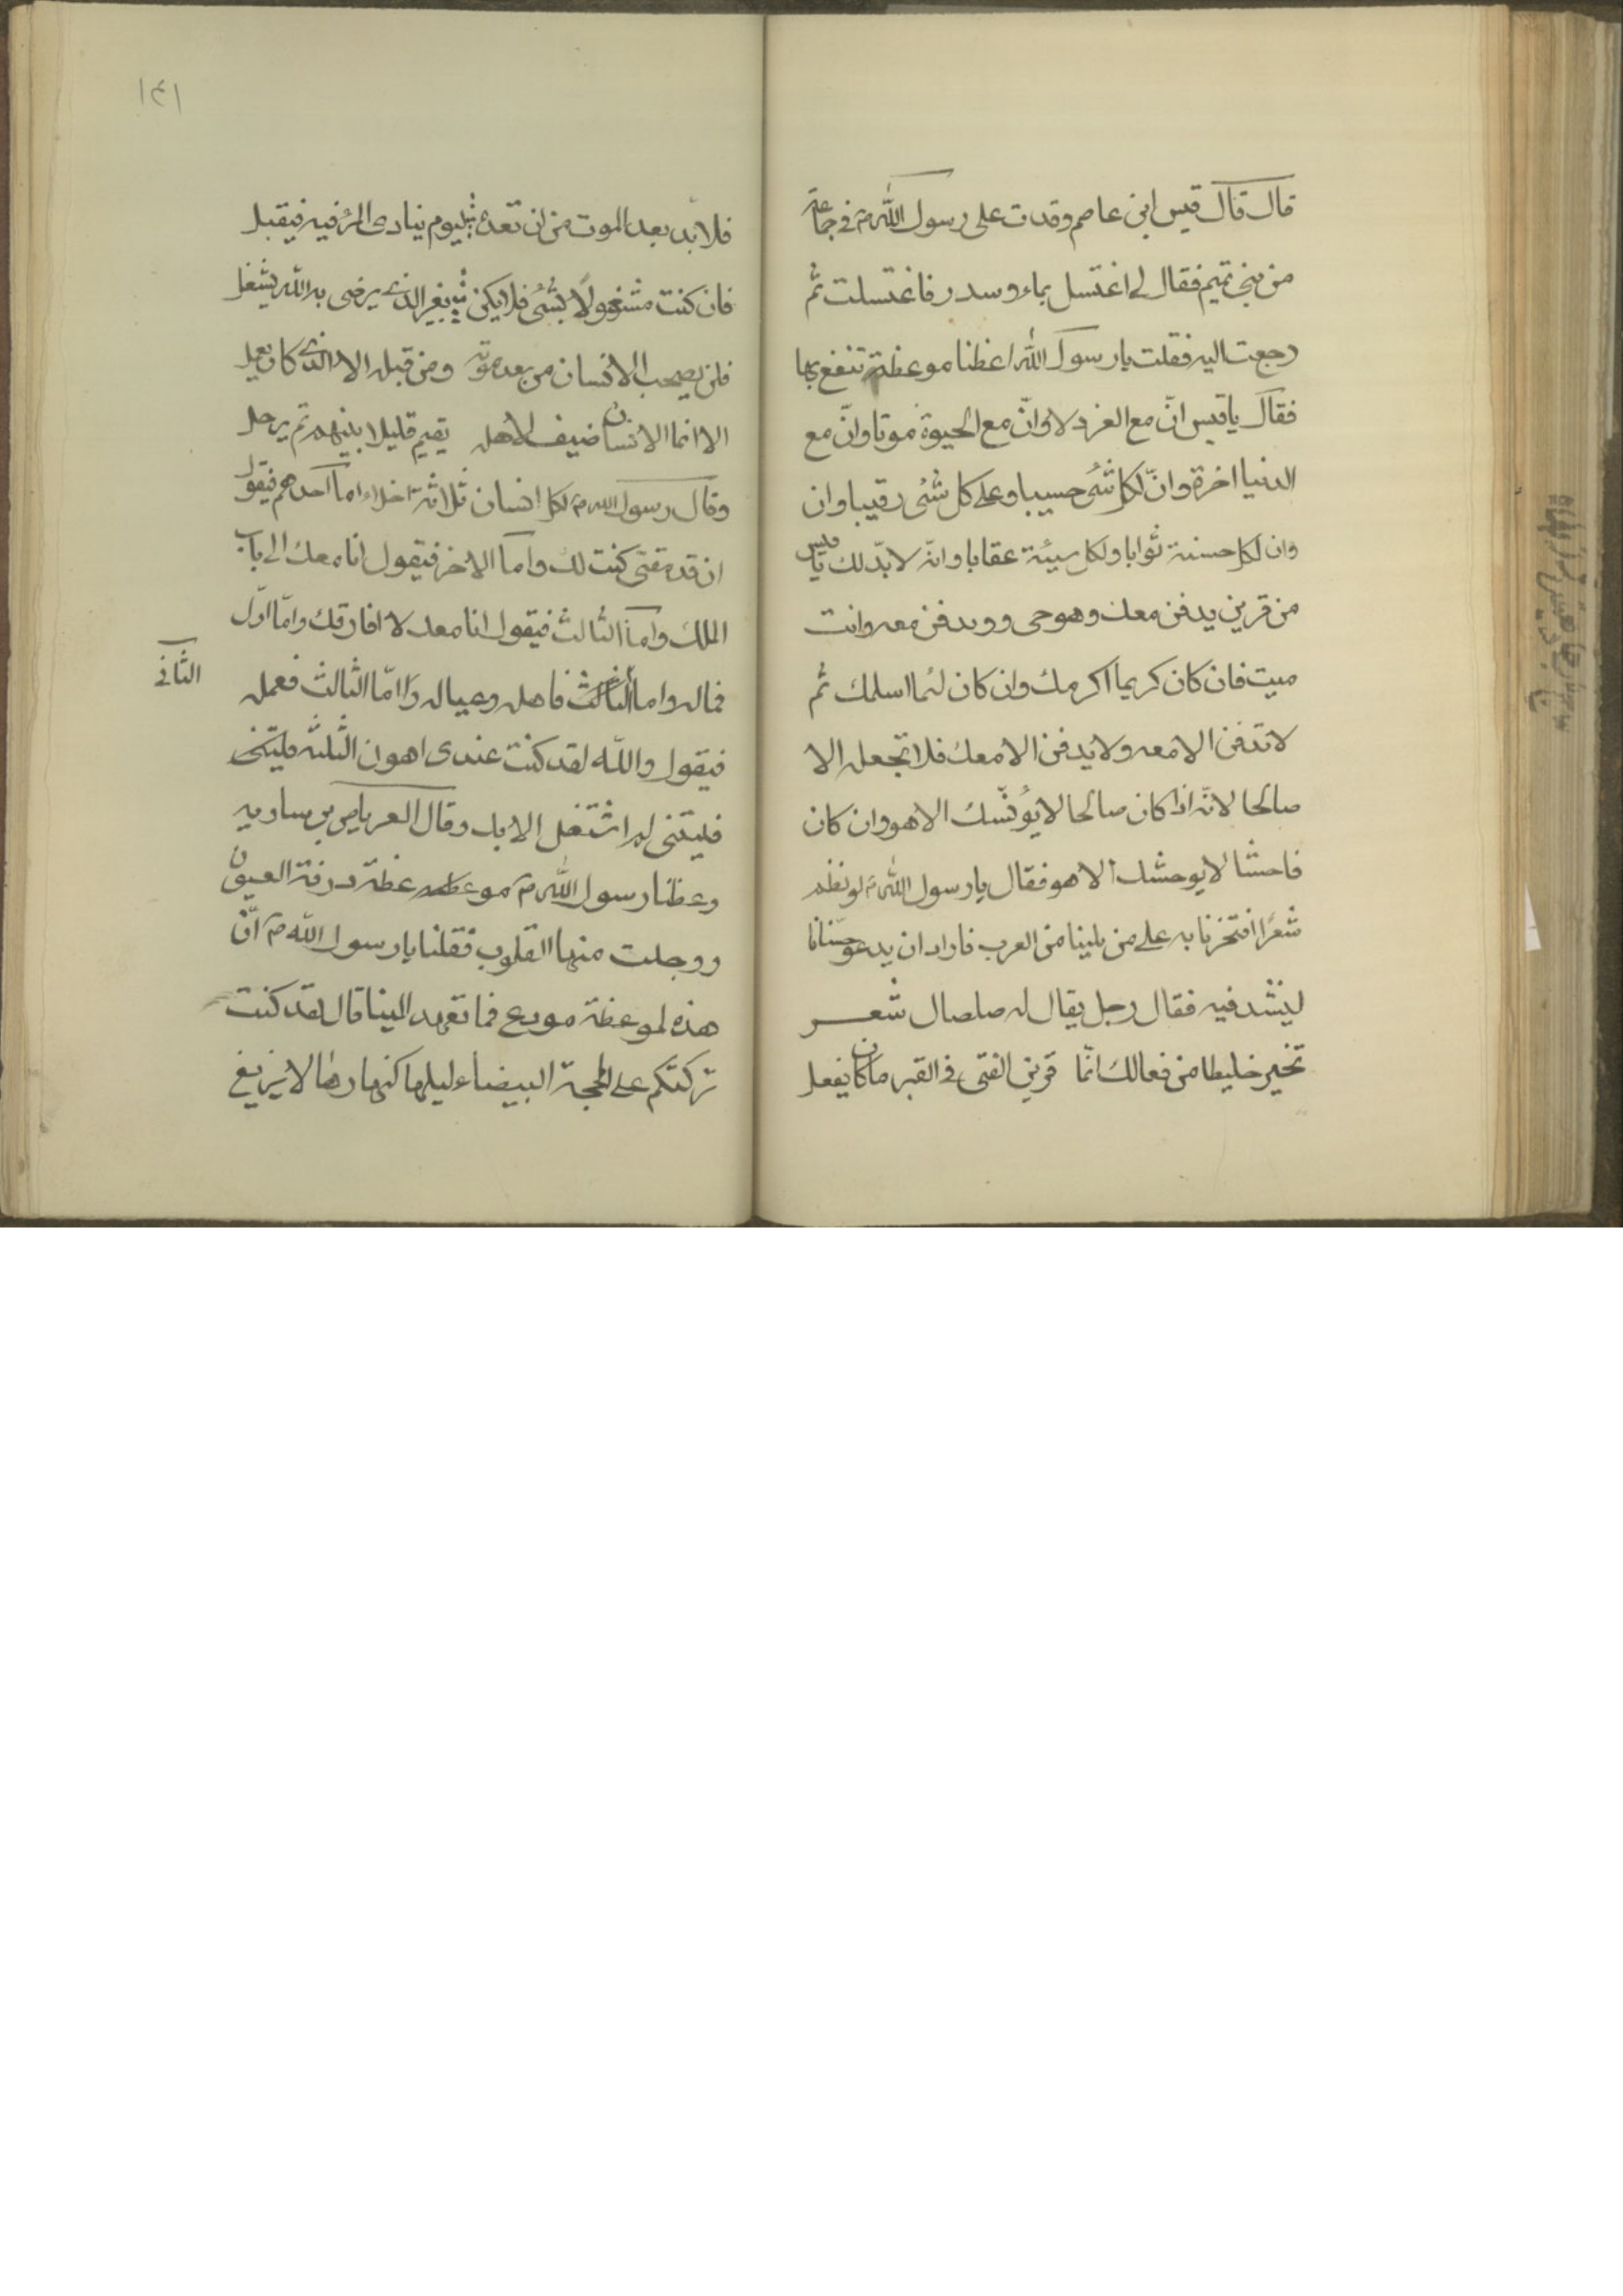 قال قال قيس ابن عاصم وقدت على رسول الله ص في جماعة
من بني تميم فقال لي اغتسل بماء وسدر فاغتسلت ثم
رجعت اليه فقلت يا رسول الله اعظنا موعظة ننتفع بها
فقال يا قيس انّ مع العز ذلا وانّ مع الحيوة موتا وانّ مع
الدنيا اخرة وانّ لكل شئ حسيبا وعلى كل شئ رقيبا وان
وان لكل حسنة ثوابا ولكل سيئة عقابا وانه لا بدّ لك يا قيس
من قرين يدفن معك وهو حي وويدفن معه وانت
ميت فان كان كريما اكرمك وان كان لئما اسلمك ثم
لا تدفن الا معه ولا يدفن الا معك فلا تجعله الا
صالحا لانّه اذا كان صالحا لا يؤنسك الا هو وان كان
فاحشا لا يوحشك الا هو فقال يا رسول الله ص لو نظم
شعرًا افتخرنا به على من يلينا من العرب فاراد ان يدعو حسانا
لينشد فيه فقال رجل يقال له صلصال شعر
تخير خليطا من فعالك انّما قرين الفتى في القبر ما كان يفعل
١٤١
فلا بدّ بعد الموت من ان تعده ليوم ينادى المرء فيه فيقبل
فان كنت مشغولًا بشئ فلا يكن بغير الذي يرضى به الله يشغل
فلن يصحب الانسان من بعد موته ومن قبله الا الذي كان يعمل
الا انما الانسان ضيف لاهله يقيم قليلا بينهم ثم يرحل
وقال رسول الله ص لكل انسان ثلاثة اخلاء اما احدهم فيقول
ان قدمتني كنت لك واما الاخر فيقول انا معك الى باب
الملك واما الثالث فيقول انا معك لا افارقك وامّا اوّل
فماله واما الثالث فاهله وعياله وامّا الثالث فعمله
الثاني
فيقول والله لقد كنت عندي اهون الثلثة فليتني
فليتني لم اشتغل الا بك وقال العرباص بن ساريه
وعظنا رسول الله ص موعظه عظة ذرفة العيون
ووجلت منها القلوب فقلنا يا رسول الله ص انّ
هذه لموعظة مودع فما تعهد الينا قال لقد كنت
تركتكم على المحجة البيضاء ليلها كنهارها لا يزيغ